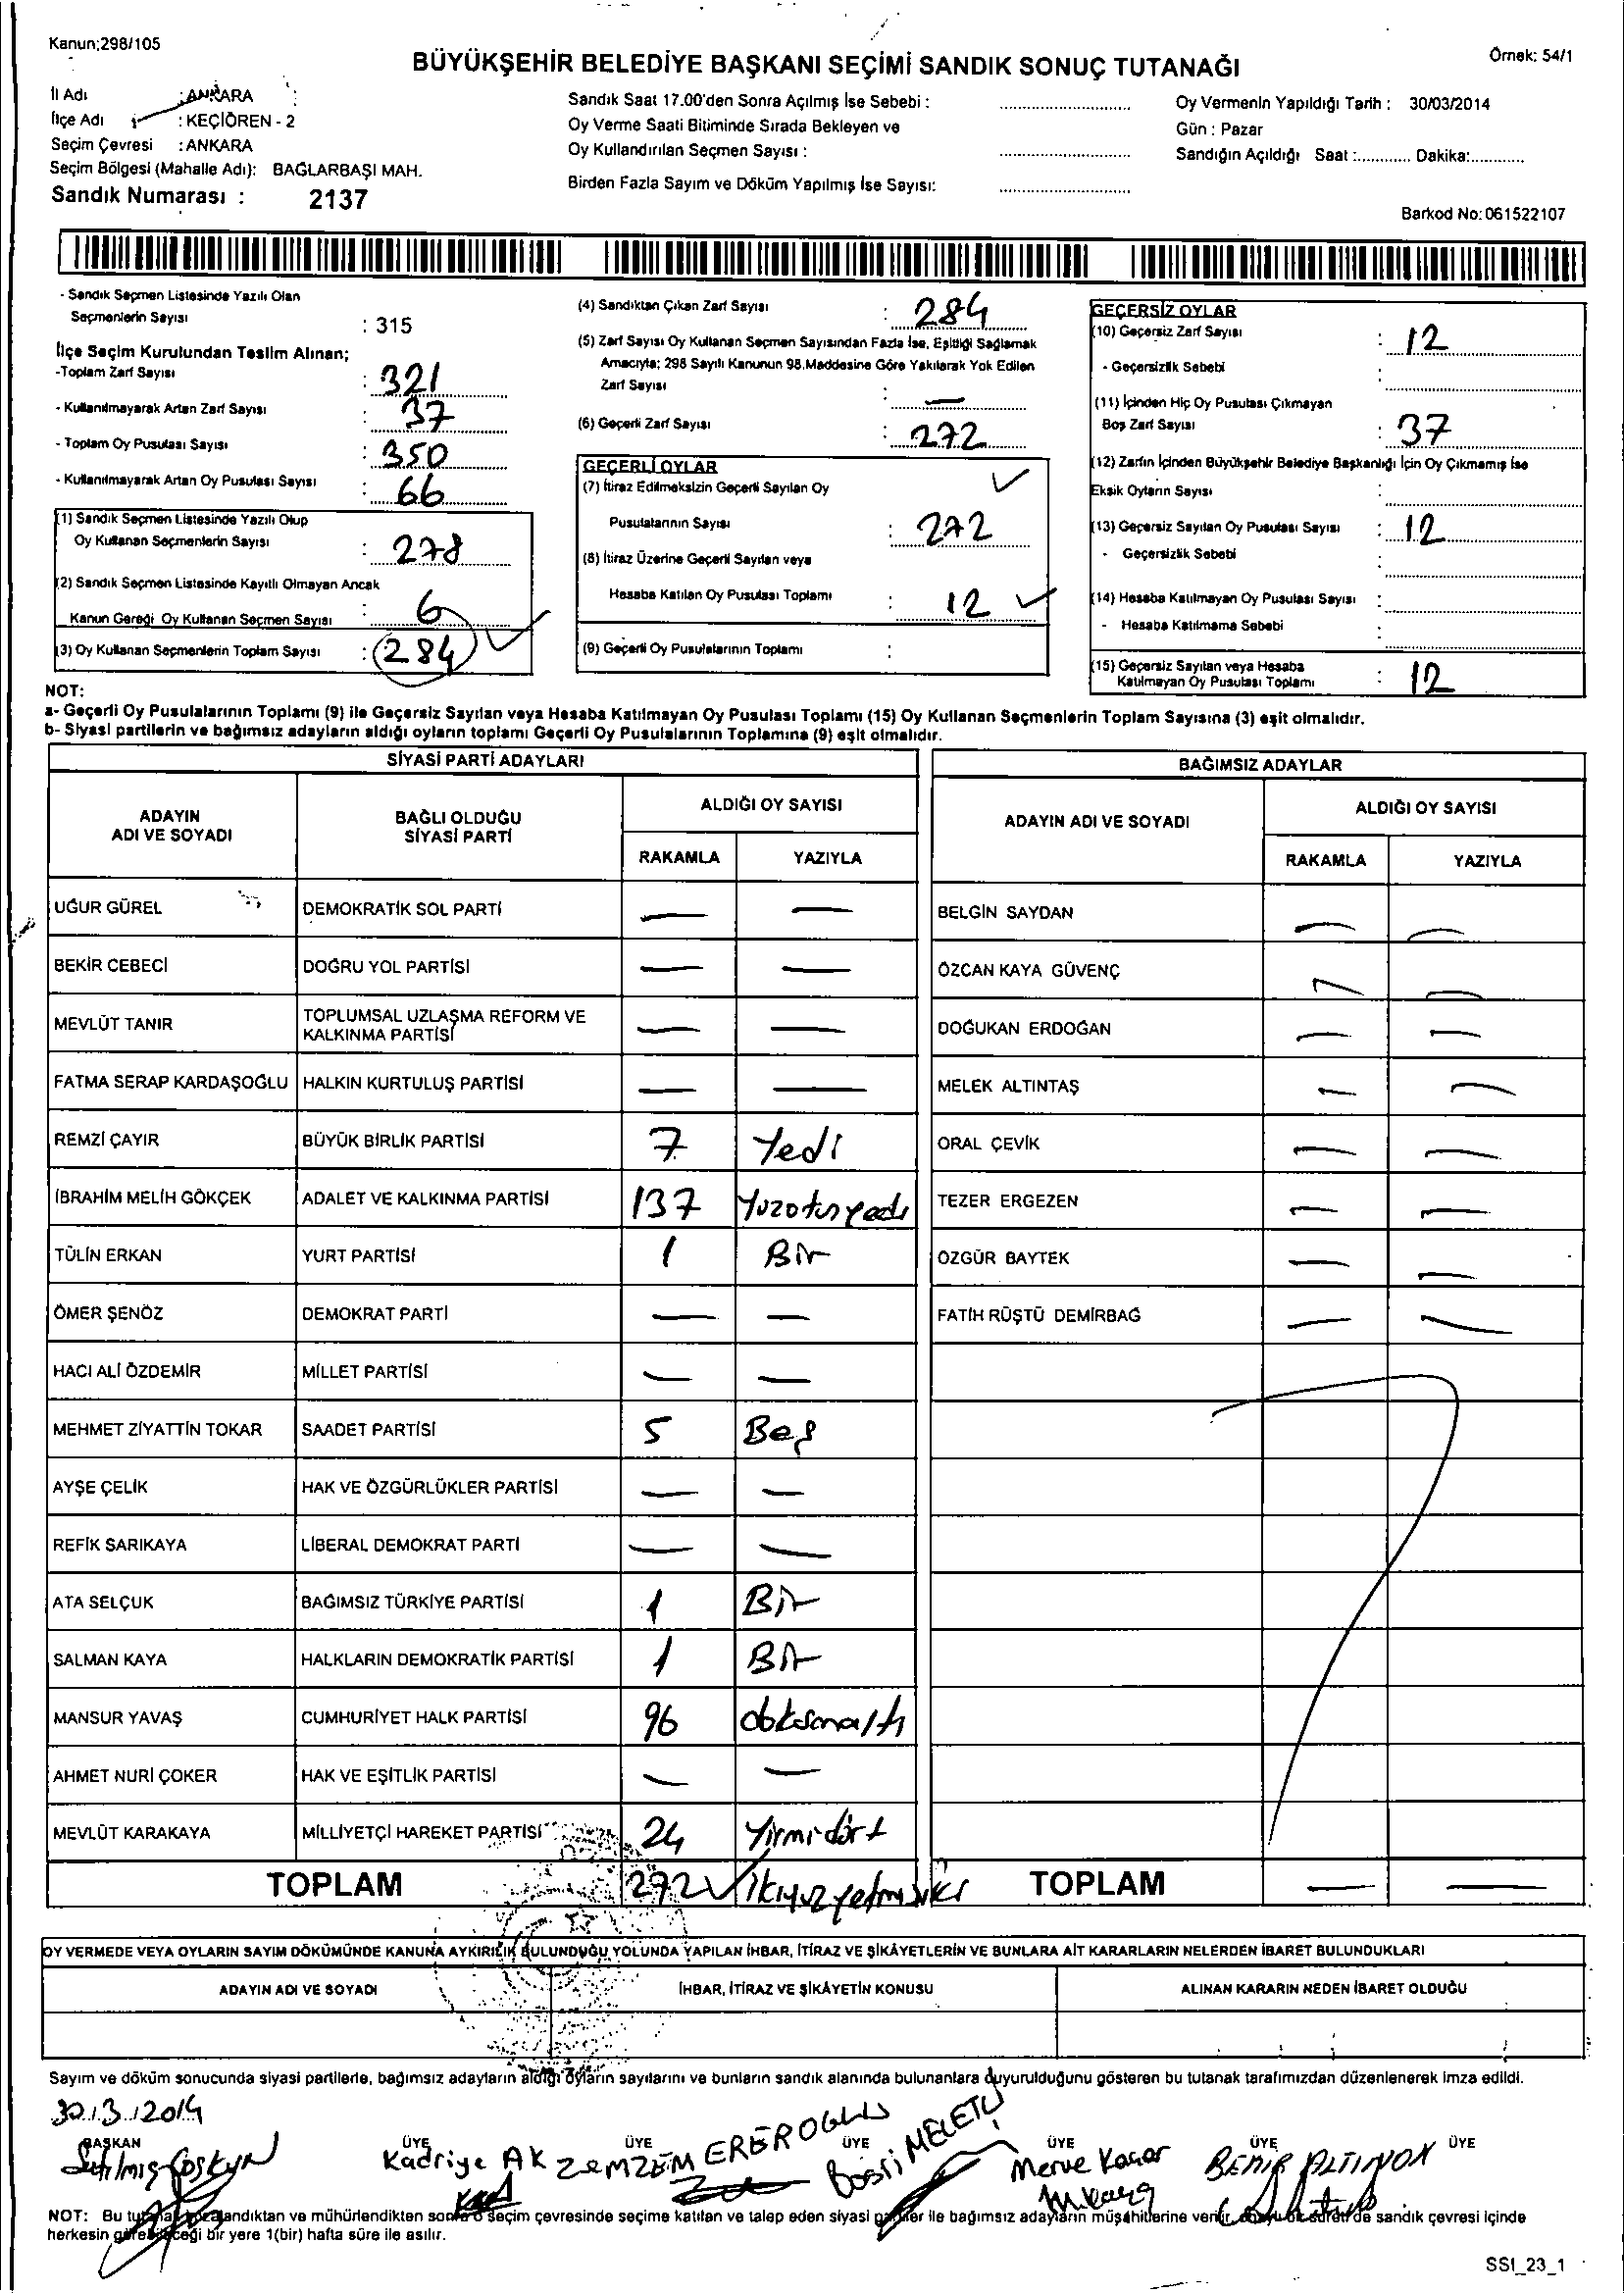 Kanun;298/105
BÜYÜKŞEHİR BELEDİYE BAŞKANI SEÇİMİ SANDIK SONUÇ TUTANAĞI
Örnek: 54/1
İl Adı : ANKARA
İlçe Adı : KEÇİÖREN - 2
Seçim Çevresi : ANKARA
Seçim Bölgesi (Mahalle Adı): BAĞLARBAŞI MAH.
Sandık Numarası : 2137
Sandık Saat 17.00'den Sonra Açılmış İse Sebebi :
Oy Verme Saati Bitiminde Sırada Bekleyen ve
Oy Kullandırılan Seçmen Sayısı :
Birden Fazla Sayım ve Döküm Yapılmış İse Sayısı:
Oy Vermenin Yapıldığı Tarih : 30/03/2014
Gün : Pazar
Sandığın Açıldığı Saat :............ Dakika:............
Barkod No: 061522107
- Sandık Seçmen Listesinde Yazılı Olan
Seçmenlerin Sayısı : 315
İlçe Seçim Kurulundan Teslim Alınan;
-Toplam Zarf Sayısı : 321
- Kullanılmayarak Artan Zarf Sayısı : 37
- Toplam Oy Pusulası Sayısı : 350
- Kullanılmayarak Artan Oy Pusulası Sayısı : 66
(1) Sandık Seçmen Listesinde Yazılı Olup
Oy Kullanan Seçmenlerin Sayısı : 278
(2) Sandık Seçmen Listesinde Kayıtlı Olmayan Ancak
Kanun Gereği Oy Kullanan Seçmen Sayısı : 6
(3) Oy Kullanan Seçmenlerin Toplam Sayısı : 284
(4) Sandıktan Çıkan Zarf Sayısı : 284
(5) Zarf Sayısı Oy Kullanan Seçmen Sayısından Fazla İse, Eşitliği Sağlamak
Amacıyla; 298 Sayılı Kanunun 98.Maddesine Göre Yakılarak Yok Edilen
Zarf Sayısı : —
(6) Geçerli Zarf Sayısı : 272
GEÇERLİ OYLAR
(7) İtiraz Edilmeksizin Geçerli Sayılan Oy
Pusulalarının Sayısı : 272
(8) İtiraz Üzerine Geçerli Sayılan veya
Hesaba Katılan Oy Pusulası Toplamı : 12
(9) Geçerli Oy Pusulalarının Toplamı :
GEÇERSİZ OYLAR
(10) Geçersiz Zarf Sayısı : 12
- Geçersizlik Sebebi :
(11) İçinden Hiç Oy Pusulası Çıkmayan
Boş Zarf Sayısı : 37
(12) Zarfın İçinden Büyükşehir Belediye Başkanlığı İçin Oy Çıkmamış İse
Eksik Oyların Sayısı :
(13) Geçersiz Sayılan Oy Pusulası Sayısı : 12
- Geçersizlik Sebebi :
(14) Hesaba Katılmayan Oy Pusulası Sayısı :
- Hesaba Katılmama Sebebi :
(15) Geçersiz Sayılan veya Hesaba
Katılmayan Oy Pusulası Toplamı : 12
NOT:
a- Geçerli Oy Pusulalarının Toplamı (9) ile Geçersiz Sayılan veya Hesaba Katılmayan Oy Pusulası Toplamı (15) Oy Kullanan Seçmenlerin Toplam Sayısına (3) eşit olmalıdır.
b- Siyasi partilerin ve bağımsız adayların aldığı oyların toplamı Geçerli Oy Pusulalarının Toplamına (9) eşit olmalıdır.
SİYASİ PARTİ ADAYLARI
ADAYIN ADI VE SOYADI
BAĞLI OLDUĞU SİYASİ PARTİ
ALDIĞI OY SAYISI
RAKAMLA YAZIYLA
UĞUR GÜREL DEMOKRATİK SOL PARTİ — —
BEKİR CEBECİ DOĞRU YOL PARTİSİ — —
MEVLÜT TANIR TOPLUMSAL UZLAŞMA REFORM VE KALKINMA PARTİSİ — —
FATMA SERAP KARDAŞOĞLU HALKIN KURTULUŞ PARTİSİ — —
REMZİ ÇAYIR BÜYÜK BİRLİK PARTİSİ 7 Yedi
İBRAHİM MELİH GÖKÇEK ADALET VE KALKINMA PARTİSİ 137 Yuzotuzyedi
TÜLİN ERKAN YURT PARTİSİ 1 Bir
ÖMER ŞENÖZ DEMOKRAT PARTİ — —
HACI ALİ ÖZDEMİR MİLLET PARTİSİ — —
MEHMET ZİYATTİN TOKAR SAADET PARTİSİ 5 Beş
AYŞE ÇELİK HAK VE ÖZGÜRLÜKLER PARTİSİ — —
REFİK SARIKAYA LİBERAL DEMOKRAT PARTİ — —
ATA SELÇUK BAĞIMSIZ TÜRKİYE PARTİSİ 1 Bir
SALMAN KAYA HALKLARIN DEMOKRATİK PARTİSİ 1 Bir
MANSUR YAVAŞ CUMHURİYET HALK PARTİSİ 96 doksanaltı
AHMET NURİ ÇOKER HAK VE EŞİTLİK PARTİSİ — —
MEVLÜT KARAKAYA MİLLİYETÇİ HAREKET PARTİSİ 24 Yirmidört
TOPLAM 272 ikiyüzyetmişiki
BAĞIMSIZ ADAYLAR
ADAYIN ADI VE SOYADI
ALDIĞI OY SAYISI
RAKAMLA YAZIYLA
BELGİN SAYDAN — —
ÖZCAN KAYA GÜVENÇ — —
DOĞUKAN ERDOĞAN — —
MELEK ALTINTAŞ — —
ORAL ÇEVİK — —
TEZER ERGEZEN — —
ÖZGÜR BAYTEK — —
FATİH RÜŞTÜ DEMİRBAĞ — —
TOPLAM — —
OY VERMEDE VEYA OYLARIN SAYIM DÖKÜMÜNDE KANUNA AYKIRILIK BULUNDUĞU YOLUNDA YAPILAN İHBAR, İTİRAZ VE ŞİKÂYETLERİN VE BUNLARA AİT KARARLARIN NELERDEN İBARET BULUNDUKLARI
ADAYIN ADI VE SOYADI İHBAR, İTİRAZ VE ŞİKÂYETİN KONUSU ALINAN KARARIN NEDEN İBARET OLDUĞU
Sayım ve döküm sonucunda siyasi partilerle, bağımsız adayların aldığı oyların sayılarını ve bunların sandık alanında bulunanlara duyurulduğunu gösteren bu tutanak tarafımızdan düzenlenerek imza edildi.
30.13.12014
BAŞKAN ÜYE ÜYE ÜYE ÜYE ÜYE ÜYE
Satılmış Coşkun Kadriye AK ZEMZEM EREROGLU Merve
NOT: Bu tutanak imzalandıktan ve mühürlendikten sonra o seçim çevresinde seçime katılan ve talep eden siyasi partiler ile bağımsız adayların müşahitlerine verilir, de sandık çevresi içinde
herkesin görebileceği bir yere 1(bir) hafta süre ile asılır.
SSI_23_1